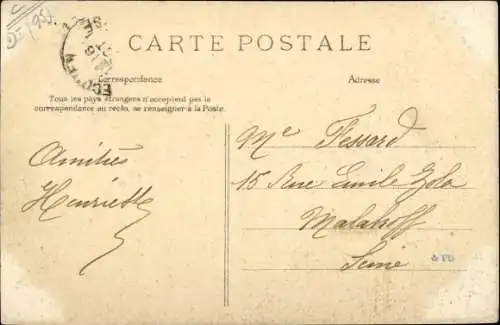 CARTE POSTALE
Correspondance
Adresse
Tous les pays étrangers n'acceptent pas la
correspondance au recto, se renseigner à la Poste.
Amitiés
Henriette
Me Fessard
15 Rue Emile Zola
Malakoff
Seine